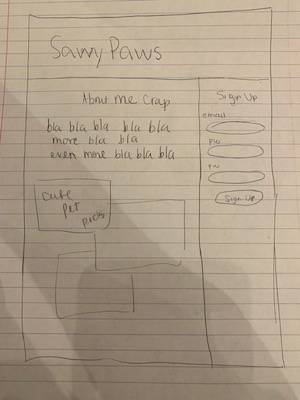 Savvy Paws
About Me Crap
bla bla bla bla bla
more bla bla
even more bla bla bla
cute
pet
pics
Sign Up
email
pw
pw
Sign Up